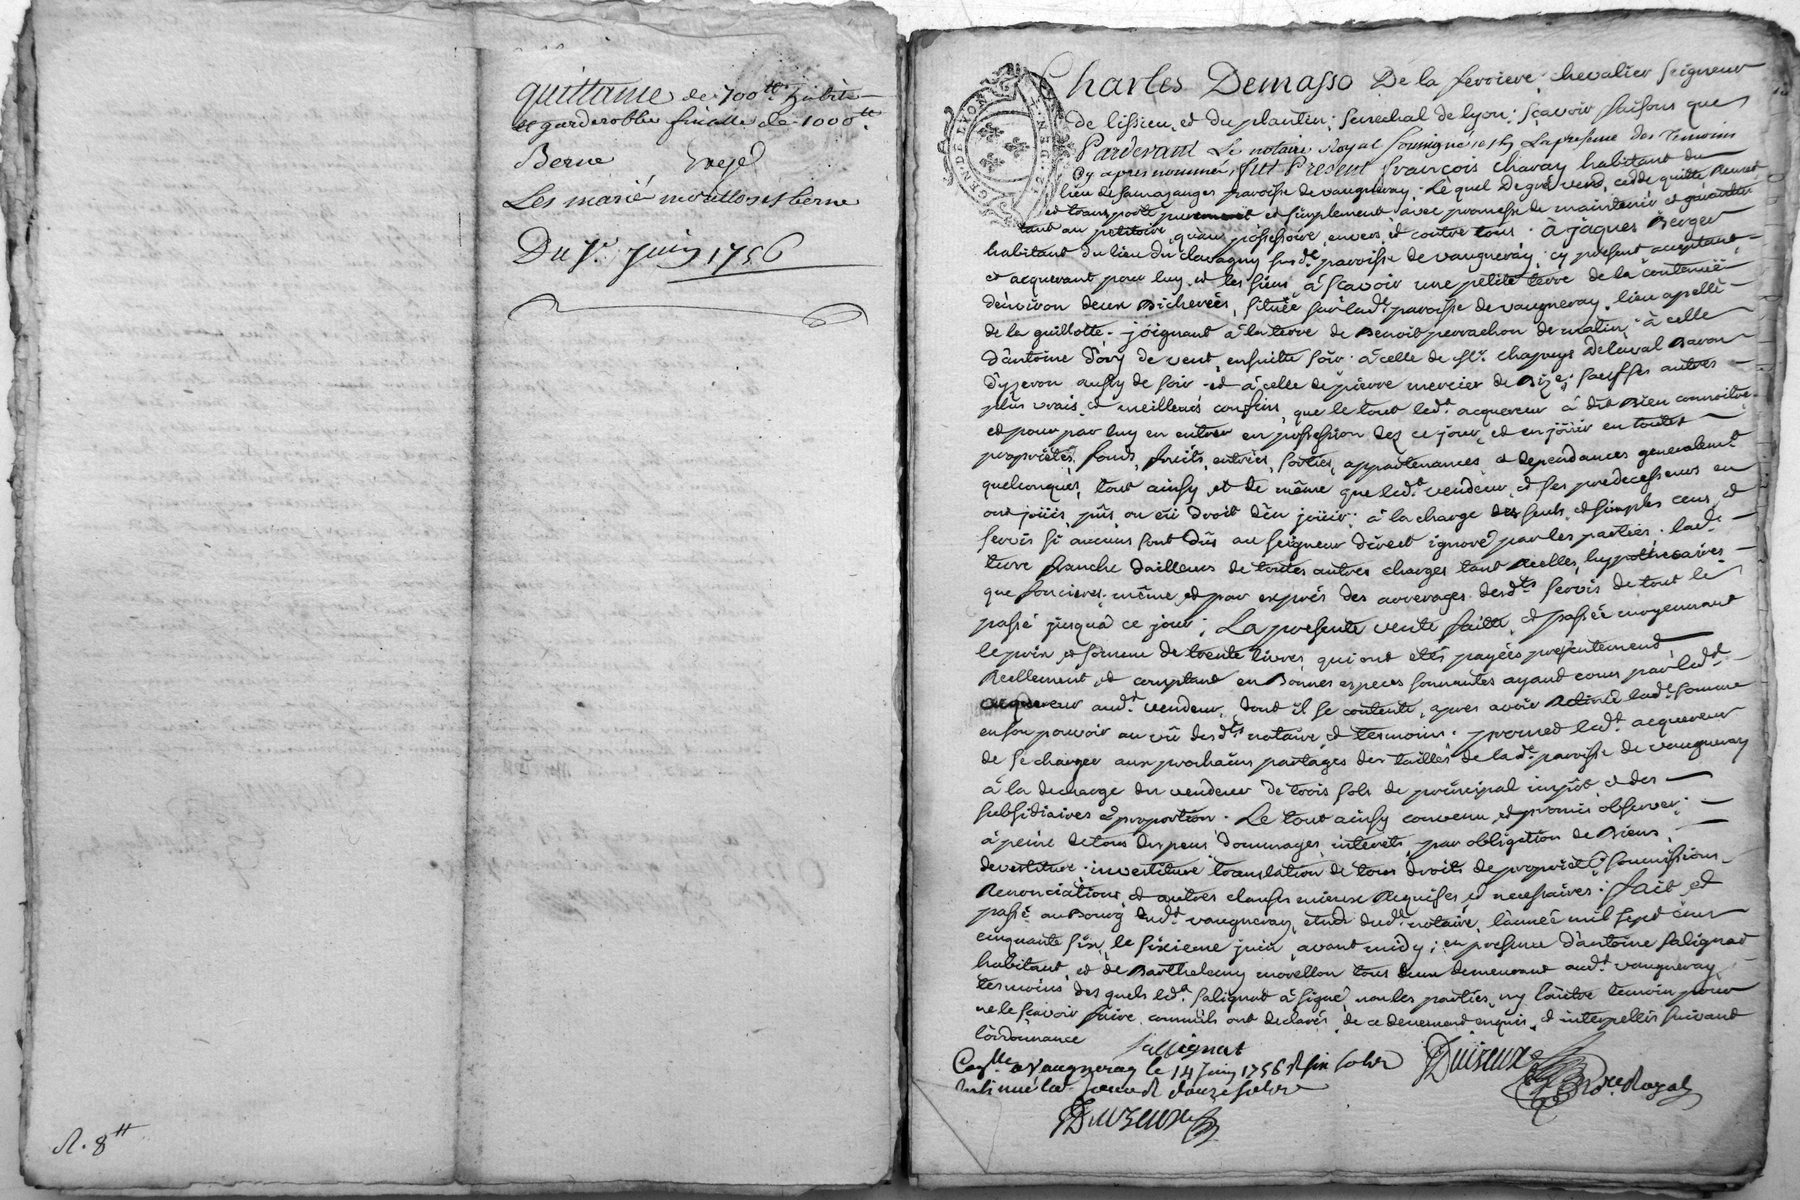 quittance de 700tt habits
et garderobbe finalle de 1000tt
Berne
Les mariés morillon et berne
Du 7e juin 1756
R. 8tt
GEN. DE LYON
Charles Demasso De la ferriere, chevalier seigneur
de lissieu, et du plantin, senechal de lyon, sçavoir faisons que
Pardevant Le notaire Royal soussigné et en La presence des Temoins
cy apres nommés, fut Present françois chavay habitant du
lieu de parroisse de vaugneray. Lequel de gré vend, cedde quitte Remet
et transporte purement et simplement avec promesse de maintenir et garantir
tant au petitoire, qu'au possessoire, envers et contre tous. à jâques Berger
habitant du lieu du chavagny susd.e parroisse de vaugneray, cy présent acceptant
et acquerant pour luy et les siens, à sçavoir une petite terre de la contenüe
d'environ deux Bicherées, située sur lad.e parroisse de vaugneray, lieu apellé
de la guillotte. joignant à la terre de Benoit perrachon de matin, à celle
d'antoine d'ory de vent, ensuitte soir. à celle de sr. chapuys delaval Baron
d'yzeron aussy de soir. et à celle de pierre mercier de Bize, sauf ses autres
plus vrais et meilleurs confins, que le tout led.t acquereur à dit Bien connoitre
et pour par luy en entrer en possession dez ce jour, et en joüir en toutes
proprietés, fonds, fruits, entrées, sorties, appartenances et dependances generalem.t
quelconques, tout ainsy et de même que led.t vendeur et ses predecesseurs en
ont joüis, pûs, ou eü droit d'en joüir. à la charge des seuls et simples cens et
servis si aucuns sont dûs au seigneur direct ignoré par les parties, lad.e
terre franche d'ailleurs de toutes autres charges tant Reelles, hypothecaires
que foncieres, même et par exprés des arrerages desd.ts servis de tout le
passé jusqu'à ce jour. La presente vente faitte et passée moyennant
le prix et somme de trente livres qui ont etés payées presentement
Reellement et comptant en Bonnes especes sonnantes ayant cours par led.t
acquereur aud.t vendeur, dont il se contente, apres avoir Retiré lad.e somme
en son pouvoir au vü desd.ts notaire et tesmoins. promet led.t acquereur
de se charger aux prochains partages des tailles de lad.e parroisse de vaugneray
à la decharge du vendeur de trois sols de principal impôt et des
subsidiaires à proportion. Le tout ainsy convenu et promis observer
à peine de tous despens dommages interets, par obligation de Biens,
devestiture investiture translation de tous droits de proprieté, soumissions
Renonciations et autres clauses mieux Requises et necessaires. fait et
passé au Bourg dud.t vaugneray, etude dud.t notaire, l'année mil sept cens
cinquante six, le sixieme juin, avant midy, en presence d'antoine salignat
habitant, et de Barthelemy morellon tous deux demeurant aud.t vaugneray
tesmoins desquels led.t salignat à signé, non les parties, ny l'autre temoin pour
ne le sçavoir faire comm'ils ont declarés, de ce deuement enquis et interpellés suivant
l'ordonnance
sallignat
Duizeux
No.re Royal
Con.llé a Vaugneray le 14 juin 1756 R six sols
douze sols
Duizeux